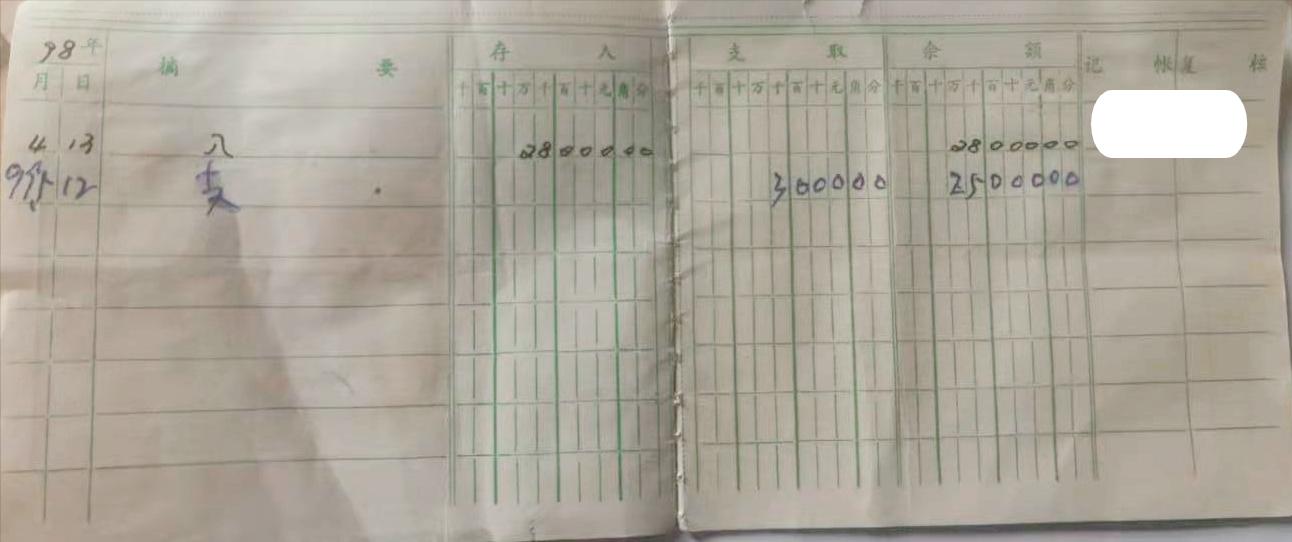 98年 摘要 存入 支取 余额 记帐 复核
月 日 千百十万千百十元角分 千百十万千百十元角分 千百十万千百十元角分
4 13 入 2800000 2800000
12 支 300000 2500000